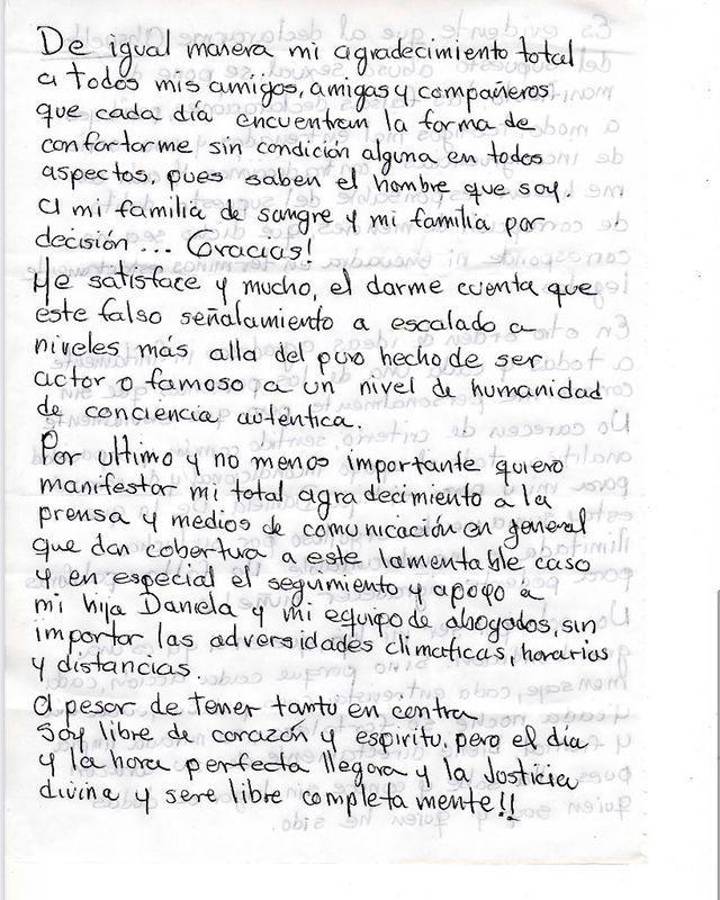 De igual manera mi agradecimiento total
a todos mis amigos, amigas y compañeros
que cada día encuentran la forma de
confortarme sin condición alguna en todos
aspectos, pues saben el hombre que soy.
A mi familia de sangre y mi familia por
decisión... Gracias!
Me satisface y mucho, el darme cuenta que
este falso señalamiento a escalado a
niveles más alla del puro hecho de ser
actor o famoso, a un nivel de humanidad
de conciencia autentica.
Por ultimo y no menos importante quiero
manifestar mi total agradecimiento a la
prensa y medios de comunicación en general
que dan cobertura a este lamentable caso
y en especial el seguimiento y apoyo a
mi hija Daniela y mi equipo de abogados, sin
importar las adversidades climaticas, horarios
y distancias.
A pesar de tener tanto en contra
soy libre de corazón y espiritu, pero el día
y la hora perfecta llegara y la Justicia
divina y sere libre completamente!!